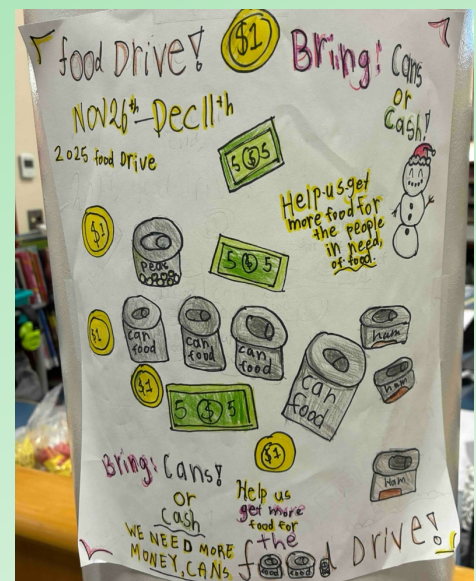 food Drive!
$1
Bring: Cans
or
Cash!
Nov 26th - Dec 11th
2025 food Drive
5 $ 5
Help us get
more food for
the people
in need,
of food.
$1
peas
5 $ 5
$1
can
food
can
food
can
food
ham
$1
can
food
ham
5 $ 5
$1
Ham
Bring: Cans!
or
Cash
Help us
get more
food for
the
WE NEED MORE
MONEY, CANS
food Drive!